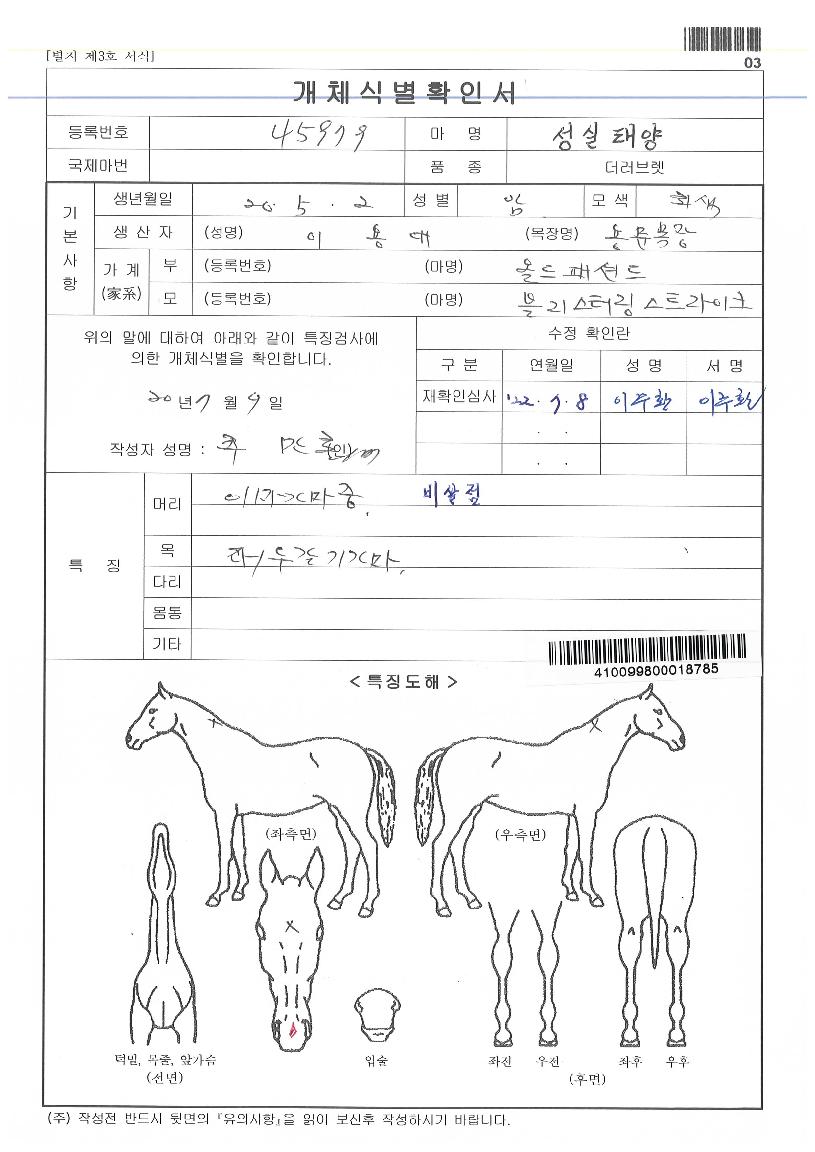 [별지 제3호 서식]
03
개체식별확인서
등록번호 45979 마 명 성실태양
국제마번 품 종 더러브렛
기본사항
생년월일 20. 5. 2 성별 암 모색 회색
생산자 (성명) 이용대 (목장명)
가계(家系) 부 (등록번호) (마명) 올드패션드
모 (등록번호) (마명) 블리스터링스트라이크
위의 말에 대하여 아래와 같이 특징검사에
의한 개체식별을 확인합니다.
20년 7월 9일
작성자 성명 : (인)
수정 확인란
구분 연월일 성명 서명
재확인심사 '22. 7. 8 이주환 이주환
. .
. .
특 징
머리 비살점
목
다리
몸통
기타
410099800018785
< 특징도해 >
(좌측면) (우측면)
턱밑, 목줄, 앞가슴 입술 좌전 우전 좌후 우후
(선면) (후면)
(주) 작성전 반드시 뒷면의 『유의시항』을 읽이 보신후 작성하시기 바랍니다.